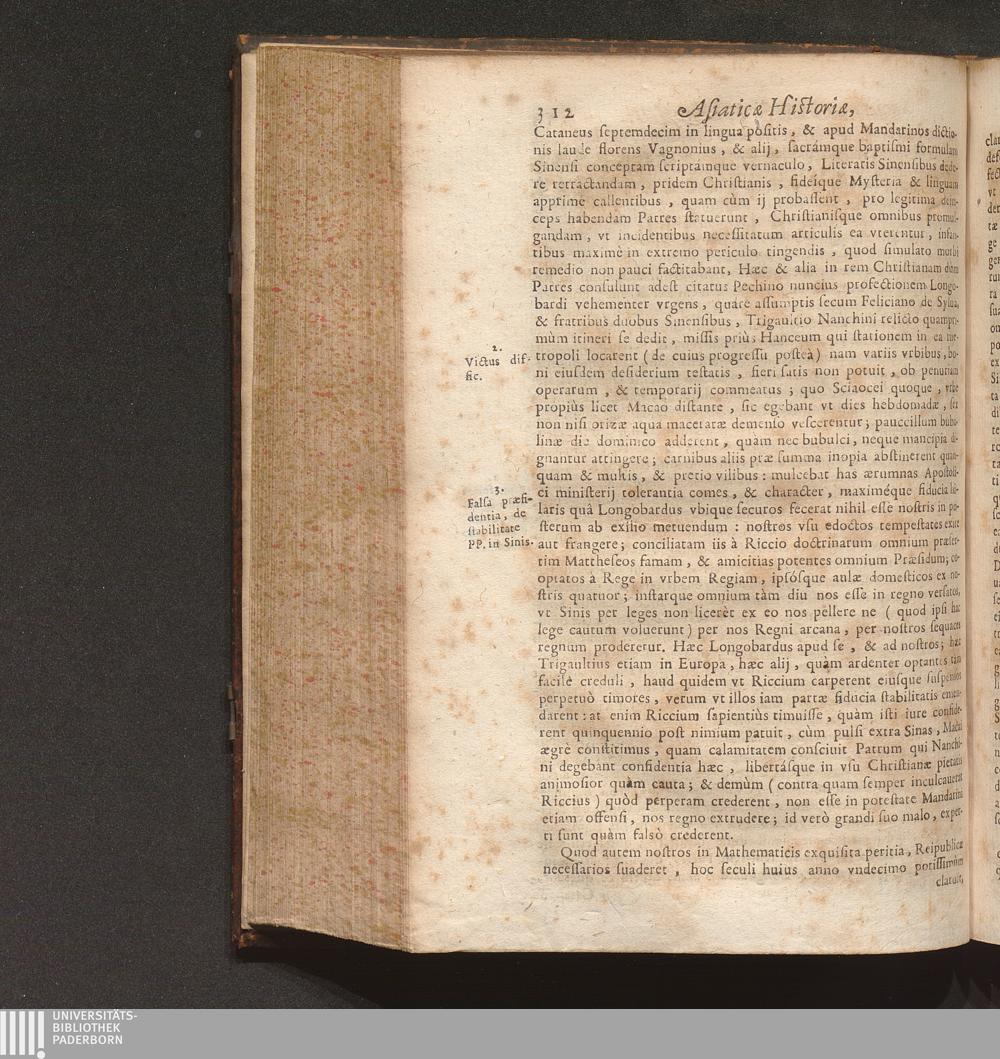 312 Asiaticæ Historiæ,
Cataneus septemdecim in lingua positis, & apud Mandarinos dictio-
nis laude florens Vagnonius, & alij, sacrámque baptismi formulam
Sinensi conceptam scriptamque vernaculo, Literatis Sinensibus dede-
re retractandam, pridem Christianis, fideíque Mysteria & linguam
apprimè callentibus, quam cùm ij probassent, pro legitima dein-
ceps habendam Patres statuerunt, Christianisque omnibus promul-
gandam, vt incidentibus necessitatum articulis ea vterentur, infan-
tibus maximè in extremo periculo tingendis, quod simulato morbi
remedio non pauci factitabant, Hæc & alia in rem Christianam dum
Patres consulunt adest citatus Pechino nuncius profectionem Longo-
bardi vehementer vrgens, quare assumptis secum Feliciano de Sylua,
& fratribus duobus Sinensibus, Trigaultio Nanchini relicto quampri-
mùm itineri se dedit, missis priùs Hanceum qui stationem in ea me-
tropoli locarent (de cuius progressu posteà) nam variis vrbibus, bo-
ni eiusdem desiderium testatis, fieri satis non potuit, ob penuriam
operarum, & temporarij commeatus; quo Sciaocei quoque, vrbe
propiùs licet Macao distante, sic egebant vt dies hebdomadæ, sex
non nisi orizæ aqua maceratæ demenso vescerentur; pauccillum bubu-
linæ die dominico adderent, quàm nec bubulci, neque mancipia di-
gnantur attingere; carnibus aliis præ summa inopia abstinerent quan-
quam & multis, & pretio vilibus: mulcebat has ærumnas Apostoli-
ci ministerij tolerantia comes, & character, maximéque fiducia hi-
laris quâ Longobardus vbique securos fecerat nihil esse nostris in po-
sterum ab exilio metuendum: nostros vsu edoctos tempestates exire
aut frangere; conciliatam iis à Riccio doctrinarum omnium præser-
tim Mattheseos famam, & amicitias potentes omnium Præsidum; co-
optatos à Rege in vrbem Regiam, ipsósque aulæ domesticos ex no-
stris quatuor; instarque omnium tàm diu nos esse in regno versatos,
vt Sinis per leges non licerèt ex eo nos pellere ne (quod ipsi hac
lege cautum voluerunt) per nos Regni arcana, per nostros sequaces
regnum proderetur. Hæc Longobardus apud se, & ad nostros; hæc
Trigaultius etiam in Europa, hæc alij, quàm ardenter optantes tàm
facilè creduli, haud quidem vt Riccium carperent eiusque suspensos
perpetuò timores, verum vt illos iam partæ fiducia stabilitatis emen-
darent: at enim Riccium sapientiùs timuisse, quàm isti iure confide-
rent quinquennio post nimium patuit, cùm pulsi extra Sinas, Macai
ægrè constitimus, quam calamitatem consciuit Patrum qui Nanchi-
ni degebant confidentia hæc, libertásque in vsu Christianæ pietatis
animosior quàm cauta; & demùm (contra quam semper inculcauerat
Riccius) quòd perperam crederent, non esse in potestate Mandarini
etiam offensi, nos regno extrudere; id verò grandi suo malo, exper-
ti sunt quàm falsò crederent.
Quod autem nostros in Mathematicis exquisita peritia, Reipublicæ
necessarios suaderet, hoc seculi huius anno vndecimo potissimùm
claruit,
2.
Victus dif-
fic.
3.
Falsa præsi-
dentia, de
stabilitate
PP. in Sinis.
UNIVERSITÄTS-
BIBLIOTHEK
PADERBORN